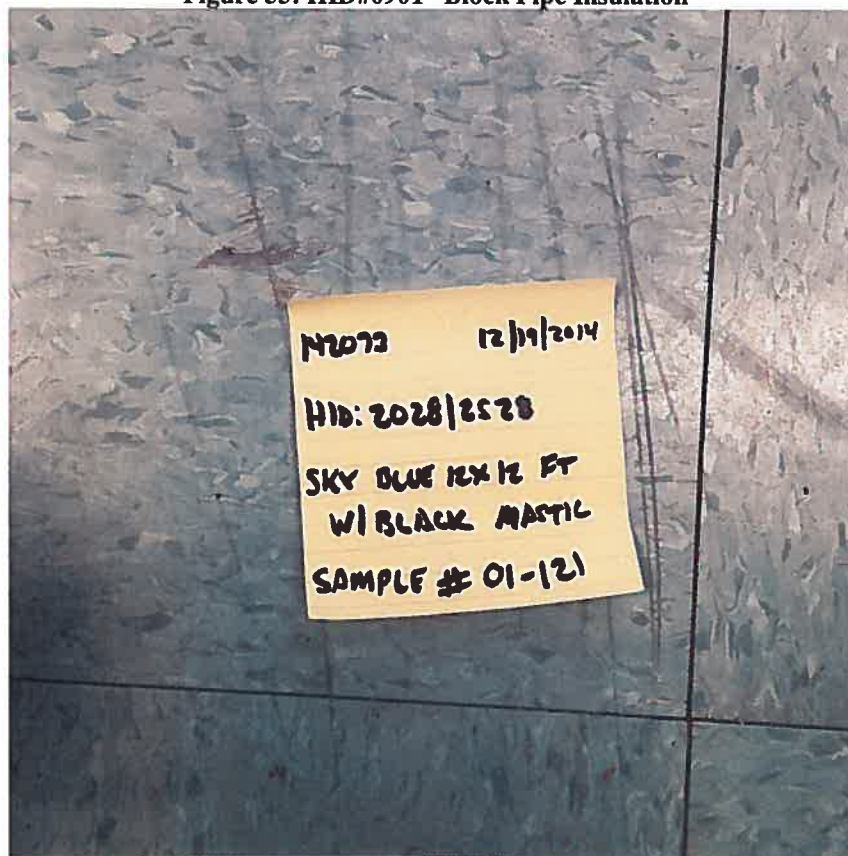 142073 12/19/2014
HID: 2028/2528
SKY BLUE 12X12 FT
W/ BLACK MASTIC
SAMPLE # 01-121